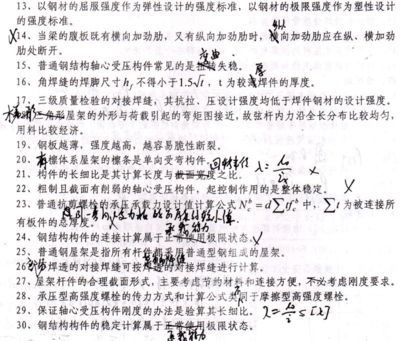 13. 以钢材的屈服强度作为弹性设计的强度标准,以钢材的极限强度作为塑性设计
的强度标准。
纵
14、当梁的腹板既有横向加劲肋,又有纵向加劲肋时,横向加劲肋应在纵、横加劲
肋处断开。
弯曲
15. 普通钢结构轴心受压构件常见的是扭转失稳。
厚
16. 角焊缝的焊脚尺寸h,不得小于1.5√t,t为较薄焊件的厚度。
17. 三级质量检验的对接焊缝,其抗拉、压设计强度均低于焊件钢材的设计强度。
梯形
18. 三角形屋架的外形与荷载引起的弯矩图接近,故弦杆内力沿全长分布比较均匀,
用料比较经济。
19. 钢板越薄,强度越高,越容易脆性断裂。
有
20. 无檩体系屋架的檩条是单向受弯构件。
回转半径 λ=l₀/i x
21. 构件的长细比是其计算长度与截面宽度之比。
22. 粗制且截面有削弱的轴心受压构件,起控制作用的是整体稳定。 x
23. 普通抗剪螺栓的承压承载力设计值计算公式 N_c^b = d∑tf_c^b 中,∑t 为被连接所
有板件的总厚度。
承载能力
24. 钢结构构件的连接计算属于正常使用极限状态。
25. 普通钢屋架是指所有杆件都采用普通型钢组成的屋架。
26. 的对接焊缝可按的对接焊缝进行计算。
27. 屋架杆件的合理截面形式,主要考虑节约材料和连接方便,不必考虑刚度要求。
不
28. 承压型高强度螺栓的传力方式和计算公式共同于摩擦型高强度螺栓。
29. 保证轴心受压构件刚度的办法是验算其长细比。 λ=l₀/i≤[λ]
30. 钢结构构件的稳定计算属于正常使用极限状态。
承载能力